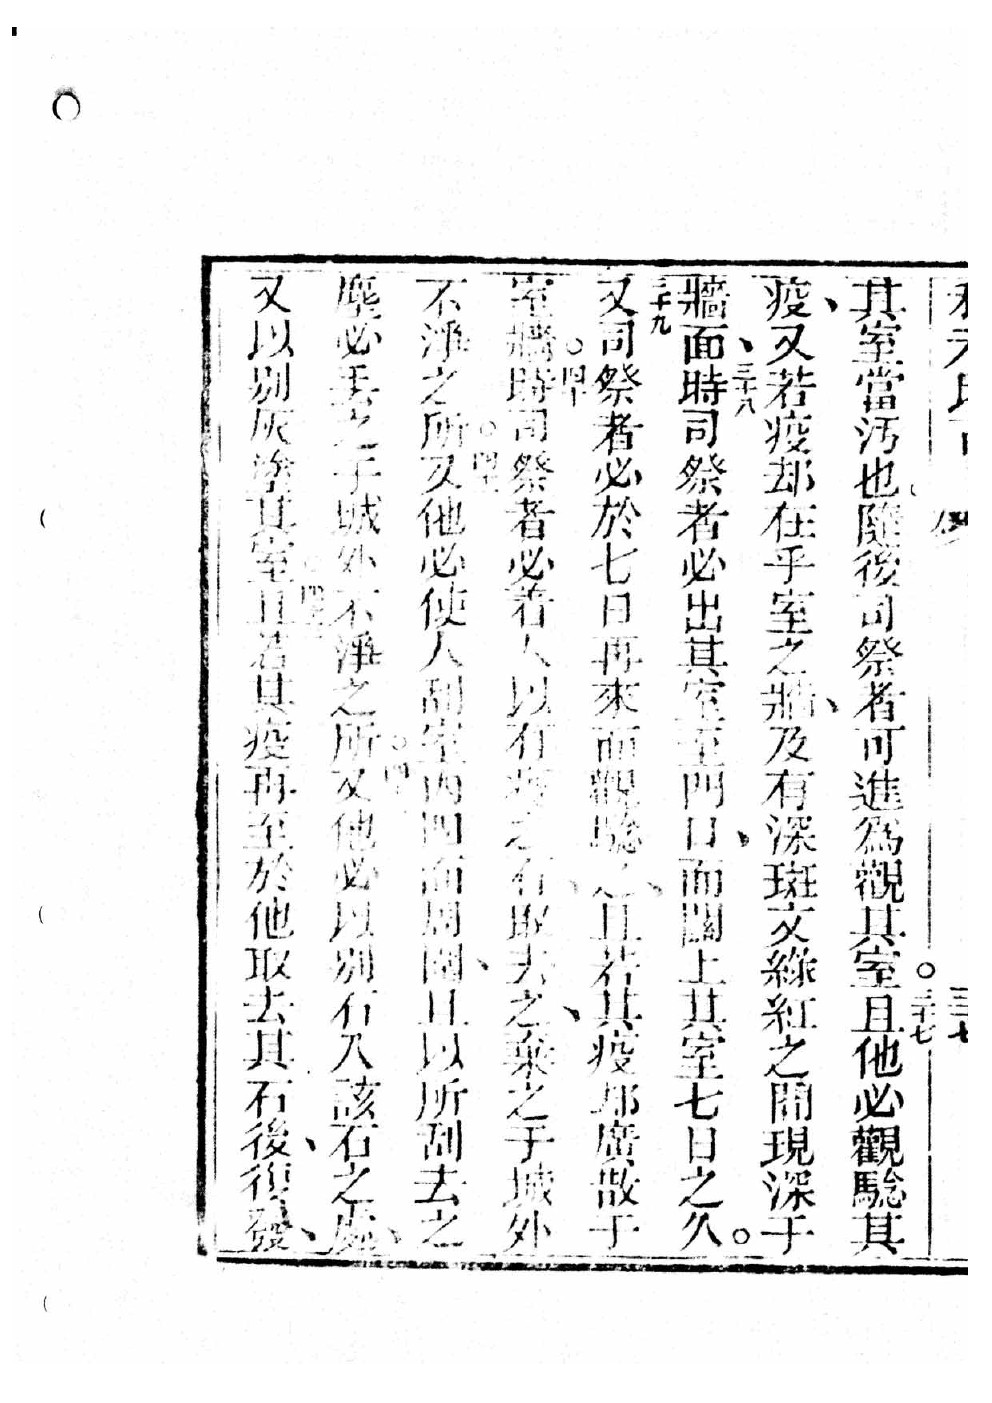 其室當汚也隨後司祭者可進為觀其室。三十七且他必觀騐其
疫、又若疫却在乎室之牆、及有深斑文綠紅之間現深于
牆面、三十八時司祭者必出其室至門口、而關上其室七日之久。
三十九又司祭者必於七日再來而觀騐之、且若其疫却廣散于
室牆。四十時司祭者必若人以有疫之石、取去之、棄之于城外
不淨之所。四十一又他必使人刮室內四面周圍、且以所刮去之
塵必丟之于城外不淨之所。四十二又他必以別石入該石之處、
又以別灰塗其室。四十三且若其疫再至於他取去其石後、後復發、